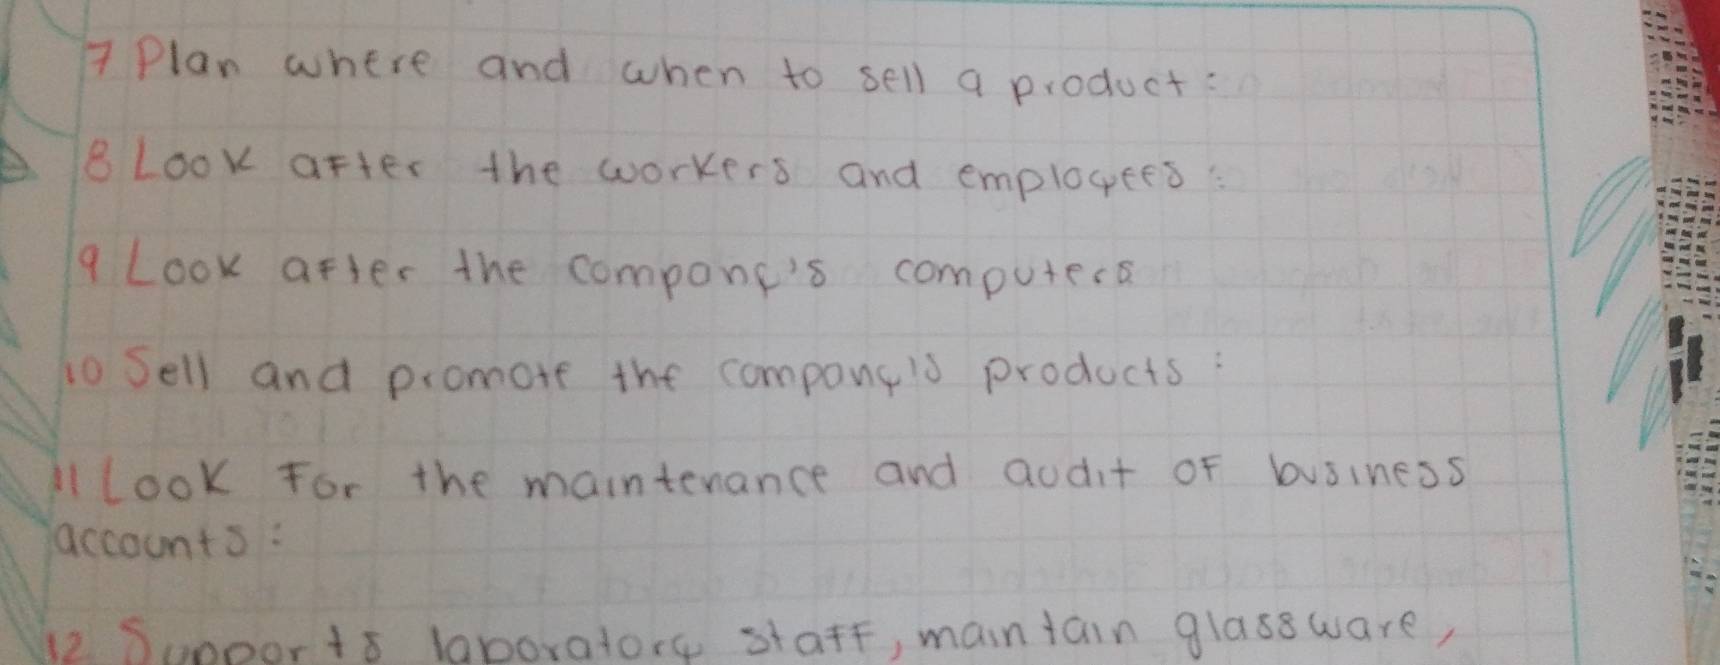 7 Plan where and when to sell a product:
8 Look after the workers and employees:
9 Look after the company's computers
10 Sell and promote the company's products:
11 Look for the maintenance and audit of business
accounts:
12 Supports laboratory staff, maintain glassware,